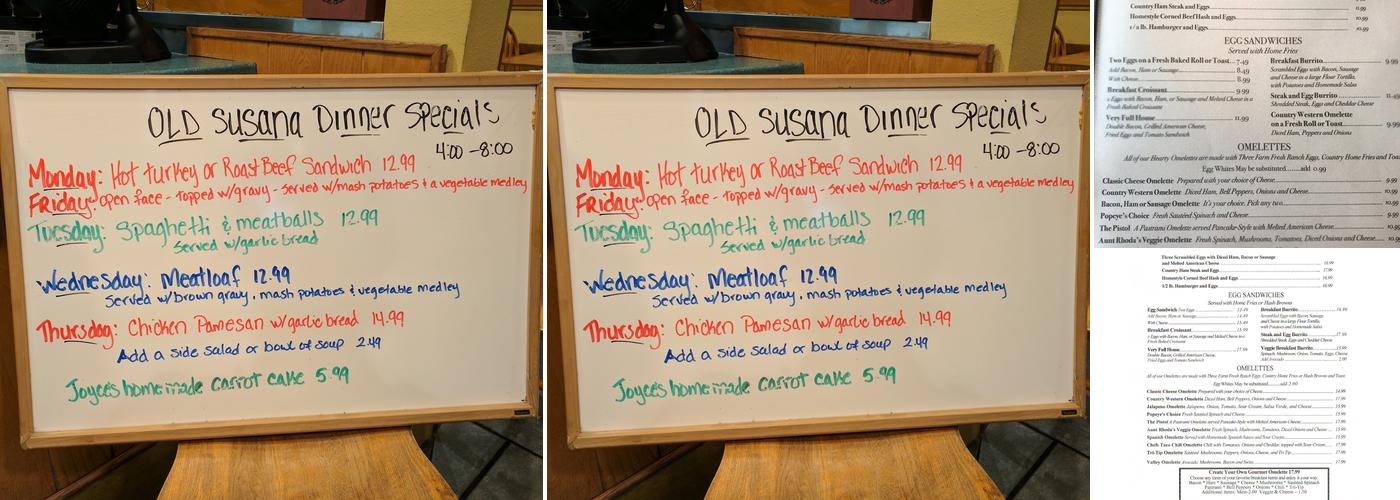 OLD SUSANA DINNER SPECIALS
4:00 - 8:00
Monday: Hot turkey or Roast Beef Sandwich 12.99
Friday: open face - topped w/gravy - served w/mash potatoes & a vegetable medley
Tuesday: Spaghetti & meatballs 12.99
Served w/garlic bread
Wednesday: Meatloaf 12.99
Served w/brown gravy, mash potatoes & vegetable medley
Thursday: Chicken Pamesan w/garlic bread 14.99
Add a side salad or bowl of soup 2.49
Joyce's homemade carrot cake 5.99
OLD SUSANA DINNER SPECIALS
4:00 - 8:00
Monday: Hot turkey or Roast Beef Sandwich 12.99
Friday: open face - topped w/gravy - served w/mash potatoes & a vegetable medley
Tuesday: Spaghetti & meatballs 12.99
Served w/garlic bread
Wednesday: Meatloaf 12.99
Served w/brown gravy, mash potatoes & vegetable medley
Thursday: Chicken Pamesan w/garlic bread 14.99
Add a side salad or bowl of soup 2.49
Joyce's homemade carrot cake 5.99
Country Ham Steak and Eggs 11.99
Homestyle Corned Beef Hash and Eggs 10.99
1/2 lb. Hamburger and Eggs 10.99
EGG SANDWICHES
Served with Home Fries
Two Eggs on a Fresh Baked Roll or Toast 7.49
Add Bacon, Ham or Sausage 8.49
With Cheese 8.99
Breakfast Croissant 9.99
2 Eggs with Bacon, Ham, or Sausage and Melted Cheese in a
Fresh Baked Croissant
Very Full House 11.99
Double Bacon, Grilled American Cheese,
Fried Eggs and Tomato Sandwich
Breakfast Burrito 9.99
Scrambled Eggs with Bacon, Sausage
and Cheese in a large Flour Tortilla,
with Potatoes and Homemade Salsa
Steak and Egg Burrito 11.49
Shredded Steak, Eggs and Cheddar Cheese
Country Western Omelette
on a Fresh Roll or Toast 9.99
Diced Ham, Peppers and Onions
OMELETTES
All of our Hearty Omelettes are made with Three Farm Fresh Ranch Eggs, Country Home Fries and Toa
Egg Whites May be substituted........add 0.99
Classic Cheese Omelette Prepared with your choice of Cheese 9.99
Country Western Omelette Diced Ham, Bell Peppers, Onions and Cheese 10.99
Bacon, Ham or Sausage Omelette It's your choice. Pick any two 10.99
Popeye's Choice Fresh Sautéed Spinach and Cheese 9.99
The Pistol A Pastrami Omelette served Pancake-Style with Melted American Cheese 10.99
Aunt Rhoda's Veggie Omelette Fresh Spinach, Mushrooms, Tomatoes, Diced Onions and Cheese 10.99
Three Scrambled Eggs with Diced Ham, Bacon or Sausage
and Melted American Cheese 16.99
Country Ham Steak and Eggs 17.99
Homestyle Corned Beef Hash and Eggs 16.99
1/2 LB. Hamburger and Eggs 16.99
EGG SANDWICHES
Served with Home Fries or Hash Browns
Egg Sandwich Two Eggs 13.49
Add Bacon, Ham, or Sausage 14.49
With Cheese 15.49
Breakfast Croissant 15.99
2 Eggs with Bacon, Ham, or Sausage and Melted Cheese in a
Fresh Baked Croissant
Very Full House 17.99
Double Bacon, Grilled American Cheese,
Fried Eggs and Tomato Sandwich
Breakfast Burrito 16.99
Scrambled Eggs with Bacon, Sausage
and Cheese in a large Flour Tortilla,
with Potatoes and Homemade Salsa
Steak and Egg Burrito 17.99
Shredded Steak, Eggs and Cheddar Cheese
Veggie Breakfast Burrito 15.99
Spinach, Mushroom, Onion, Tomato, Eggs, Cheese
Add Avocado 2.00
OMELETTES
All of our Omelettes are made with Three Farm Fresh Ranch Eggs, Country Home Fries or Hash Browns and Toast.
Egg Whites May be substituted........add 2.00
Classic Cheese Omelette Prepared with your choice of Cheese 14.99
Country Western Omelette Diced Ham, Bell Peppers, Onions and Cheese 17.99
Jalapeno Omelette Jalapeno, Onion, Tomato, Sour Cream, Salsa Verde, and Cheese 15.99
Popeye's Choice Fresh Sautéed Spinach and Cheese 15.99
The Pistol A Pastrami Omelette served Pancake-Style with Melted American Cheese 17.99
Aunt Rhoda's Veggie Omelette Fresh Spinach, Mushrooms, Tomatoes, Diced Onions and Cheese 15.99
Spanish Omelette Served with Homemade Spanish Sauce and Sour Cream 15.99
Chefs Taco Chili Omelette Chili with Tomatoes, Onions and Cheddar, topped with Sour Cream 17.99
Tri-Tip Omelette Sautéed Mushrooms, Peppers, Onions, Cheese, and Tri Tip 17.99
Valley Omelette Avocado, Mushrooms, Bacon and Swiss 17.99
Create Your Own Gourmet Omelette 17.99
Choose any three of your favorite breakfast items and enjoy it your way.
Bacon * Ham * Sausage * Cheese * Mushrooms * Sautéed Spinach
Pastrami * Bell Peppers * Onions * Chili * Tri-Tip
Additional Items: Meat-2.00 Veggie & Cheese -1.50